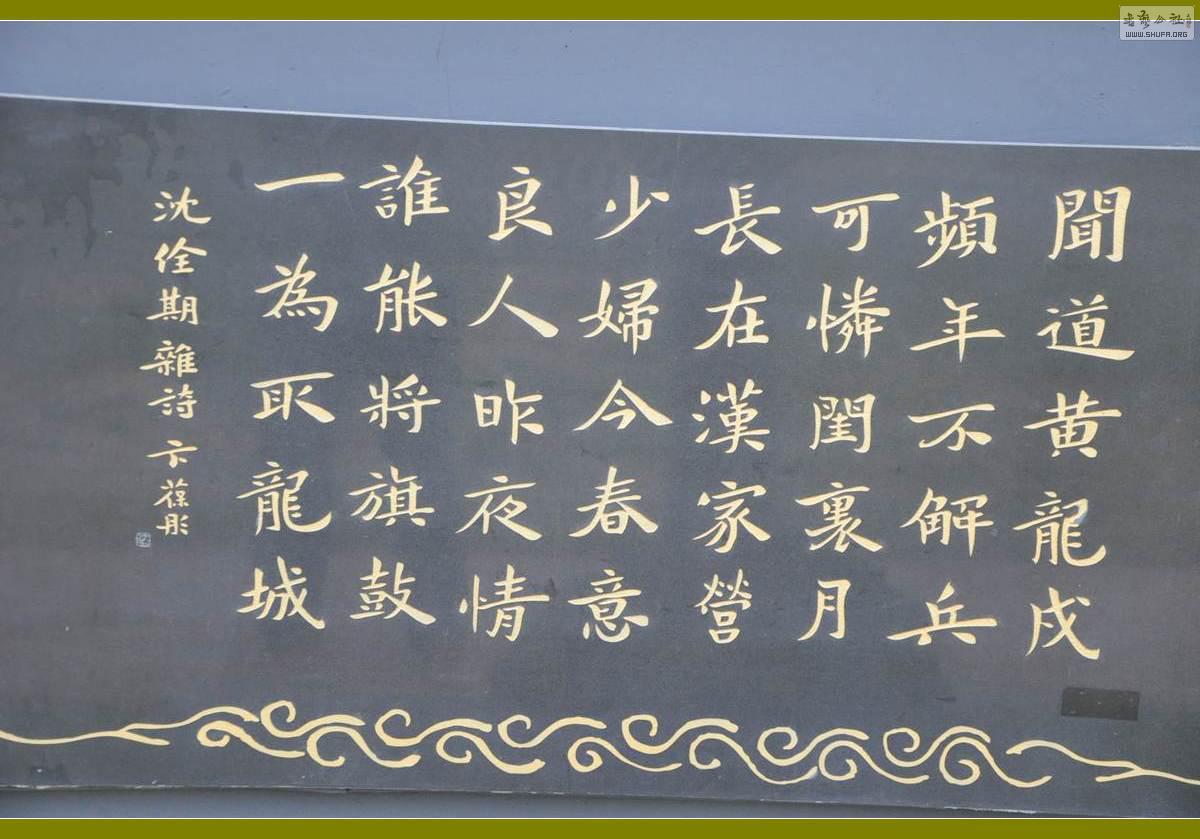 聞道黄龍戍
頻年不解兵
可憐閨裏月
長在漢家營
少婦今春意
良人昨夜情
誰能將旗鼓
一為取龍城
沈佺期雜詩 卞葆彤
WWW.SHUFA.ORG